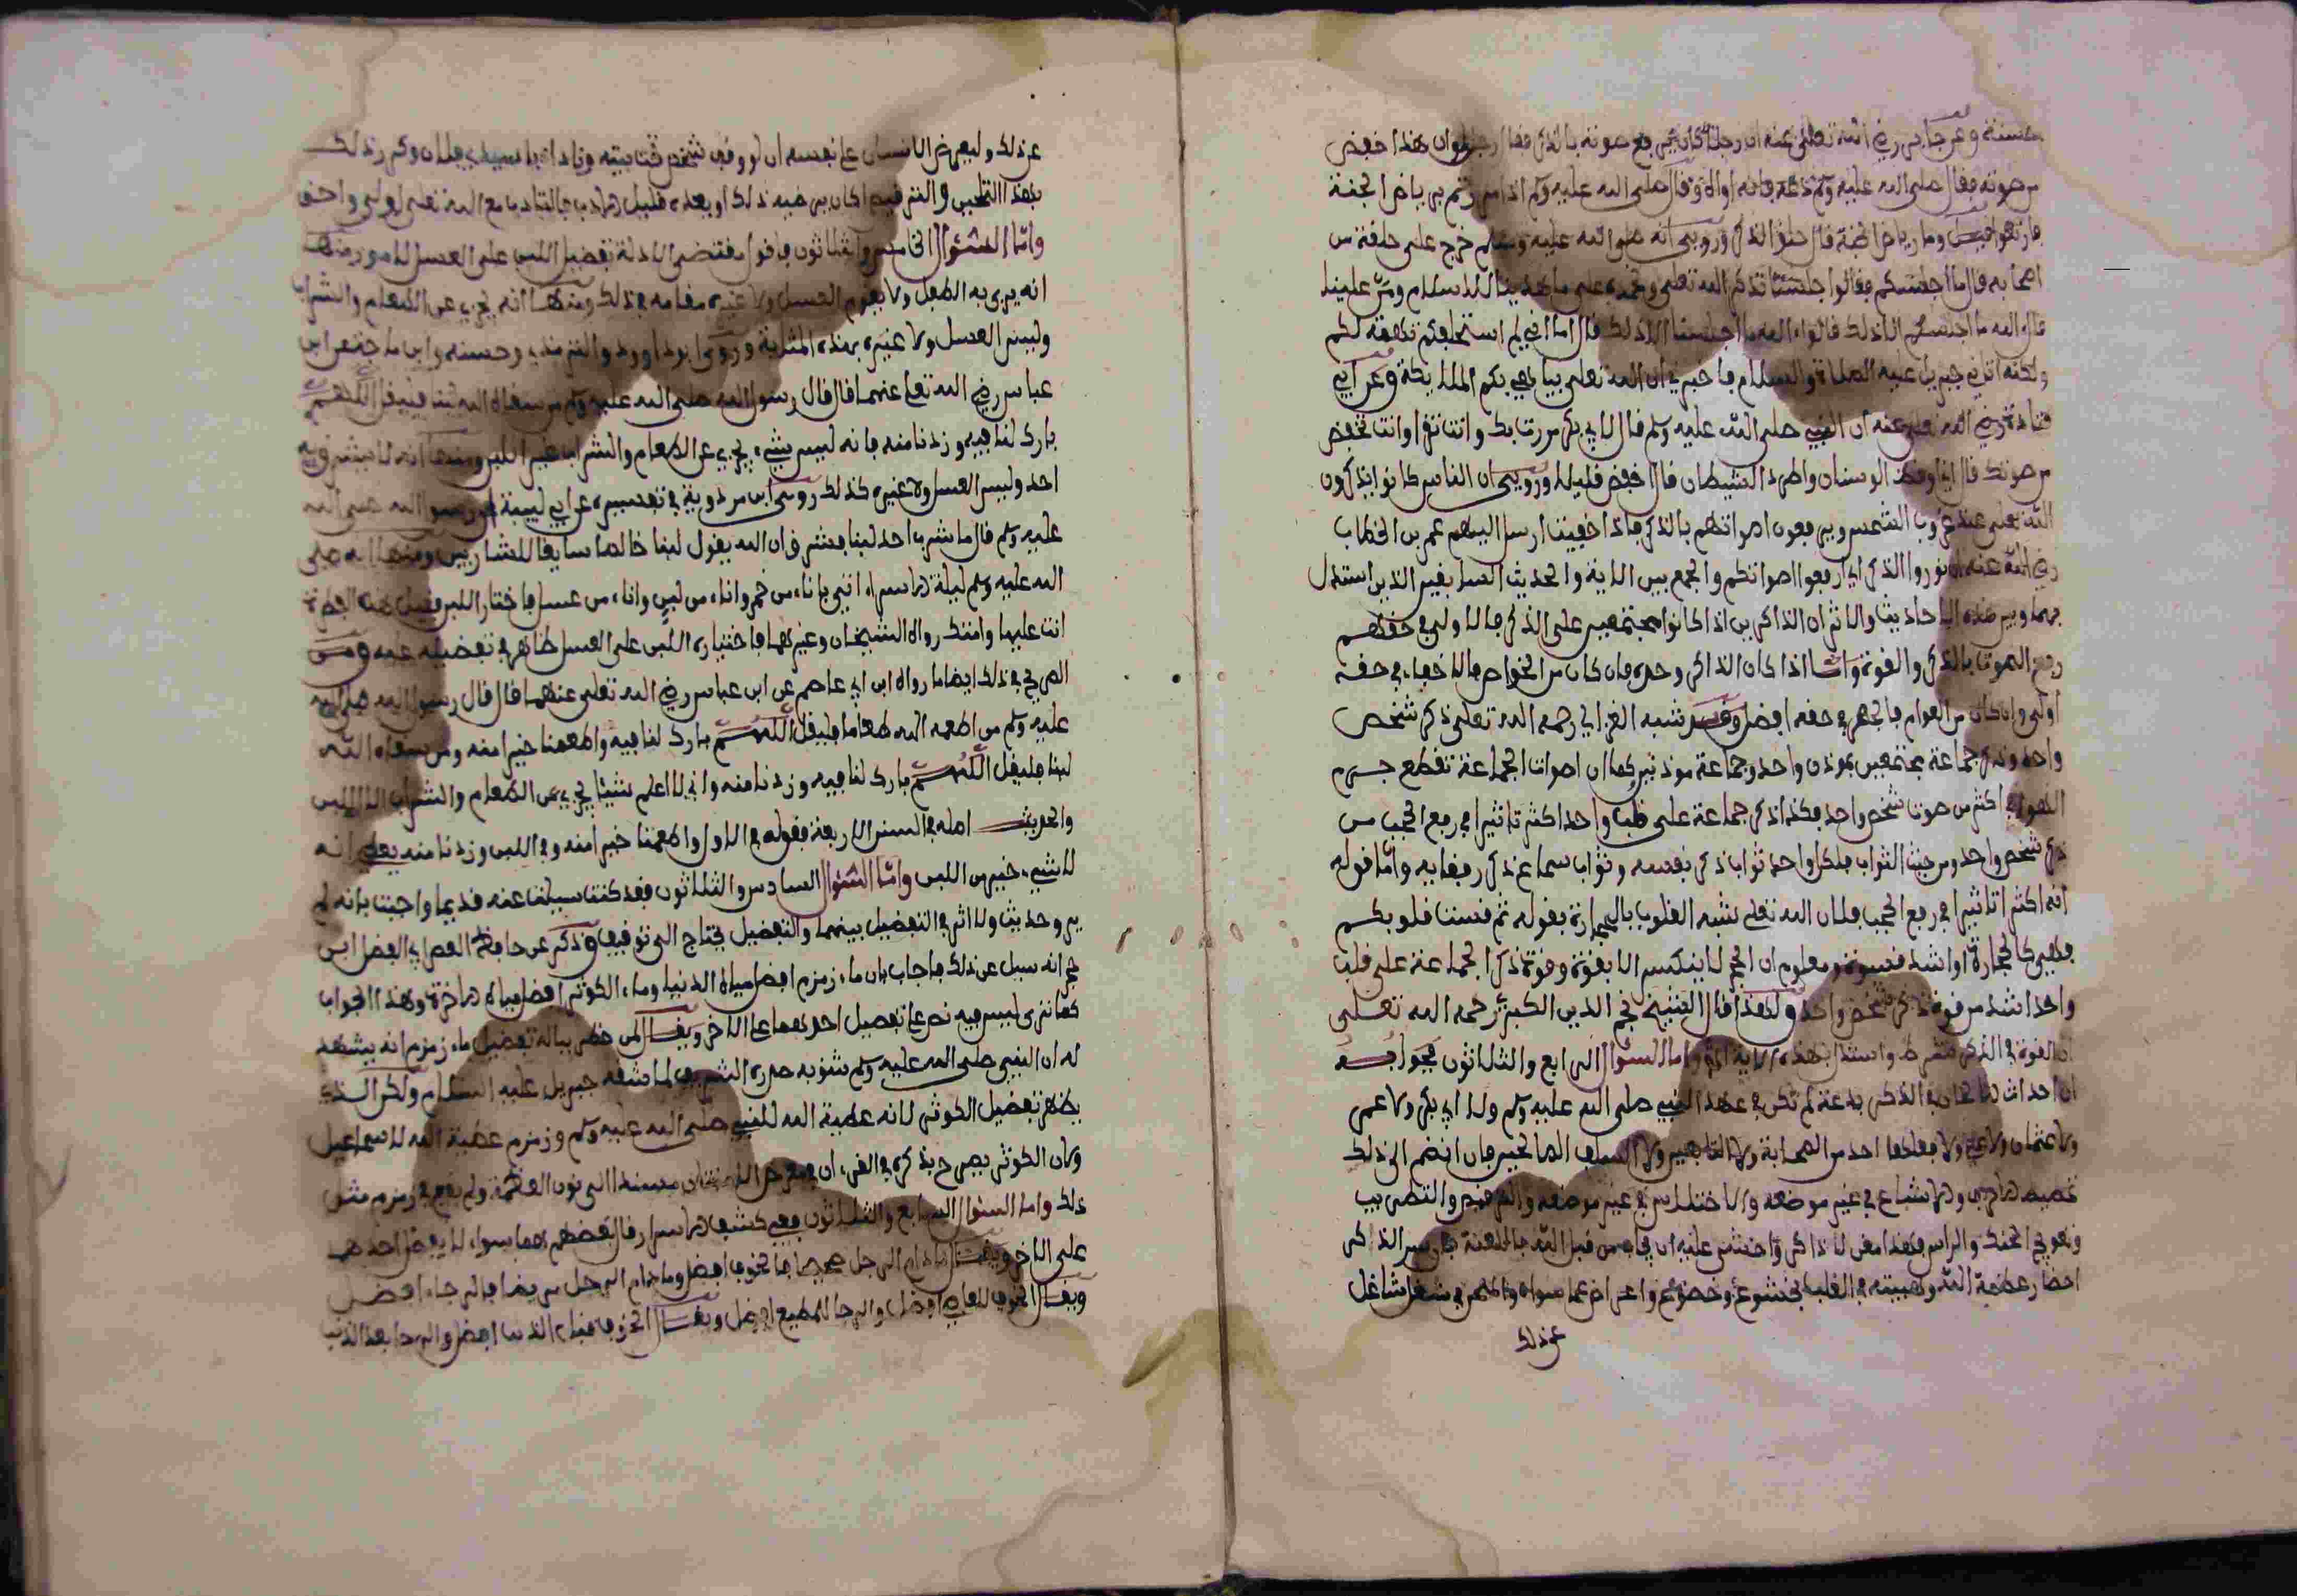 حسنة وعن جابر رضي الله تعالى عنه ان رجلا كان يرفع صوته بالذكر فقال رجل لو ان هذا خفض
من صوته فقال صلى الله عليه وسلم دعه فانه اواه وقال صلى الله عليه وسلم اذا مررتم برياض الجنة
فارتعوا قيل وما رياض الجنة قال حلق الذكر وروي انه صلى الله عليه وسلم خرج على حلقة من
اصحابه قال ما اجلسكم فقالوا جلسنا نذكر الله تعلى ونحمده على ما هدينا للاسلام ومن علينا
قال الله ما اجلسكم الا ذلك قالوا والله ما اجلسنا الا ذلك قال اما اني لم استحلفكم تهمة لكم
ولكنه اتاني جبريل عليه الصلاة والسلام فاخبرني ان الله تعلى يباهي بكم الملايكة وعن ابي
قتادة رضي الله تعلى عنه ان النبي صلى الله عليه وسلم قال لابي بكر مررت بك وانت تقرا وانت تخفض
من صوتك قال اني اوقظ الوسنان واطرد الشيطان قال اخفض قليلا وروي ان الناس كانوا يذكرون
الله تعلى عند غروب الشمس ويرفعون اصواتهم بالذكر فاذا خفيت ارسل اليهم عمر بن الخطاب
رضي الله عنه ان نوروا الذكر اي ارفعوا اصواتكم والجمع بين الاية والحديث السابقين الذين استدل
بهما وبين هذه الاحاديث والاثر ان الذاكرين اذا كانوا مجتمعين على الذكر فالاولى في حقهم
رفع الصوت بالذكر والقوة واما اذا كان الذاكر وحده فان كان من الخواص فالاخفاء في حقه
اولى وان كان من العوام فالجهر في حقه افضل وقد شبه الغزالي رحمه الله تعلى ذكر شخص
واحد وذكر جماعة مجتمعين بموذن واحد وجماعة موذنين كما ان اصوات الجماعة تقطع جرم
الهواء اكثر من صوت شخص واحد فكذا ذكر جماعة على قلب واحد اكثر تاثيرا في رفع الحجب من
ذكر شخص واحد ومن حيث الثواب فلكل واحد ثواب ذكر نفسه وثواب سماع ذكر رفقايه واما قوله
انه اكثر تاثيرا في رفع الحجب فلان الله تعلى شبه القلوب بالحجارة بقوله ثم قست قلوبكم
فهي كالحجارة او اشد قسوة ومعلوم ان الحجر لا ينكسر الا بقوة وقوة ذكر الجماعة على قلب
واحد اشد من قوة ذكر شخص واحد ولهذا قال الشيخ نجم الدين الكبرى رحمه الله تعلى
ان القوة في الذكر شرط واستدل بهذه الاية واما السؤال الرابع والثلاثون فجوابه
ان احداث الالحان في الذكر بدعة لم تكن في عهد النبي صلى الله عليه وسلم ولا ابي بكر ولا عمر
ولا عثمان ولا علي ولا فعلها احد من الصحابة ولا التابعين ولا السلف الصالحين فان انضم الى ذلك
تمطيط الاحرف والاشباع في غير موضعه والاختلاس في غير موضعه والترقيق والتطريب
وتعويج الحنك والراس فهذا مغن لا ذاكر واخشى عليه ان يجاب من قبل الله باللعنة فان سر الذكر
احضار عظمة الله وهيبته في القلب بخشوع وخضوع واعراض عما سواه والملحن في شغل شاغل
عن ذلك
عن ذلك وليعرض الانسان على نفسه ان لو وقف شخص تحت بيته وناداه يا سيدي فلان وكرر ذلك
بهذا التلحين والترقيص اكان يرضيه ذلك او يعده قليل الادب فالتادب مع الله تعلى اولى واحق
واما السؤال الخامس والثلاثون فاقول مقتضى الادلة تفضيل اللبن على العسل لامور منها
انه يربى به الطفل ولا يقوم العسل ولا غيره مقامه في ذلك ومنها انه يجزي عن الطعام والشراب
وليس العسل ولا غيره بهذه المثابة وروى ابو داوود والترمذي وحسنه وابن ماجه عن ابن
عباس رضي الله تعلى عنهما قال قال رسول الله صلى الله عليه وسلم من سقاه الله لبنا فليقل اللهم
بارك لنا فيه وزدنا منه فانه ليس شيء يجزي عن الطعام والشراب غير اللبن ومنها انه لا يشرق به
احد وليس العسل ولا غيره كذلك روى ابن مردوية في تفسيره عن ابي لبيبة ان رسول الله صلى الله
عليه وسلم قال ما شرب احد لبنا فشرق ان الله يقول لبنا خالصا سايغا للشاربين ومنها انه صلى
الله عليه وسلم ليلة الاسراء اتي باناء من خمر واناء من لبن واناء من عسل فاختار اللبن فقيل هذه الفطرة
انت عليها وامتك رواه الشيخان وغيرهما فاختياره اللبن على العسل ظاهر في تفضيله عليه ومن
الصريح في ذلك ايضا ما رواه ابن ابي عاصم عن ابن عباس رضي الله تعلى عنهما قال قال رسول الله صلى الله
عليه وسلم من اطعمه الله طعاما فليقل اللهم بارك لنا فيه واطعمنا خيرا منه ومن سقاه الله
لبنا فليقل اللهم بارك لنا فيه وزدنا منه واني لا اعلم شيئا يجزي من الطعام والشراب الا اللبن
والحديث اصله في السنن الاربعة فقوله في الاول واطعمنا خيرا منه وفي اللبن وزدنا منه يعطي انه
لا شيء خير من اللبن واما السؤال السادس والثلاثون فقد كنت سيلت عنه قديما واجبت بانه لم
يرو حديث ولا اثر في التفضيل بينهما والتفضيل يحتاج الى توقيف وذكر عن حافظ العصر ابي الفضل ابن
حجر انه سيل عن ذلك فاجاب بان ماء زمزم افضل مياه الدنيا وماء الكوثر افضل مياه الاخرة وهذا الجواب
كما ترى ليس فيه نص على تفضيل احدهما على الاخر ويقال لمن خطر بباله تفضيل ماء زمزم انه يشهد
له ان النبي صلى الله عليه وسلم شق به صدره الشريف لما شقه جبريل عليه السلام ولكن الذي
يظهر تفضيل الكوثر لانه عطية الله للنبي صلى الله عليه وسلم وزمزم عطية الله لاسماعيل
ولان الكوثر يصرح بذكره في القرءان في معرض الامتنان مسندا الى نون العظمة ولم يقع في زمزم مثل
ذلك واما السؤال السابع والثلاثون ففي كشف الاسرار قال بعضهم هما سواء لا يفضل احدهما
على الاخر ويقال ما دام الرجل صحيحا فالخوف افضل وما دام الرجل مريضا فالرجاء افضل
ويقال الخوف للعاصي افضل والرجا للمطيع افضل ويقال الخوف قبل الذنب افضل والرجا بعد الذنب